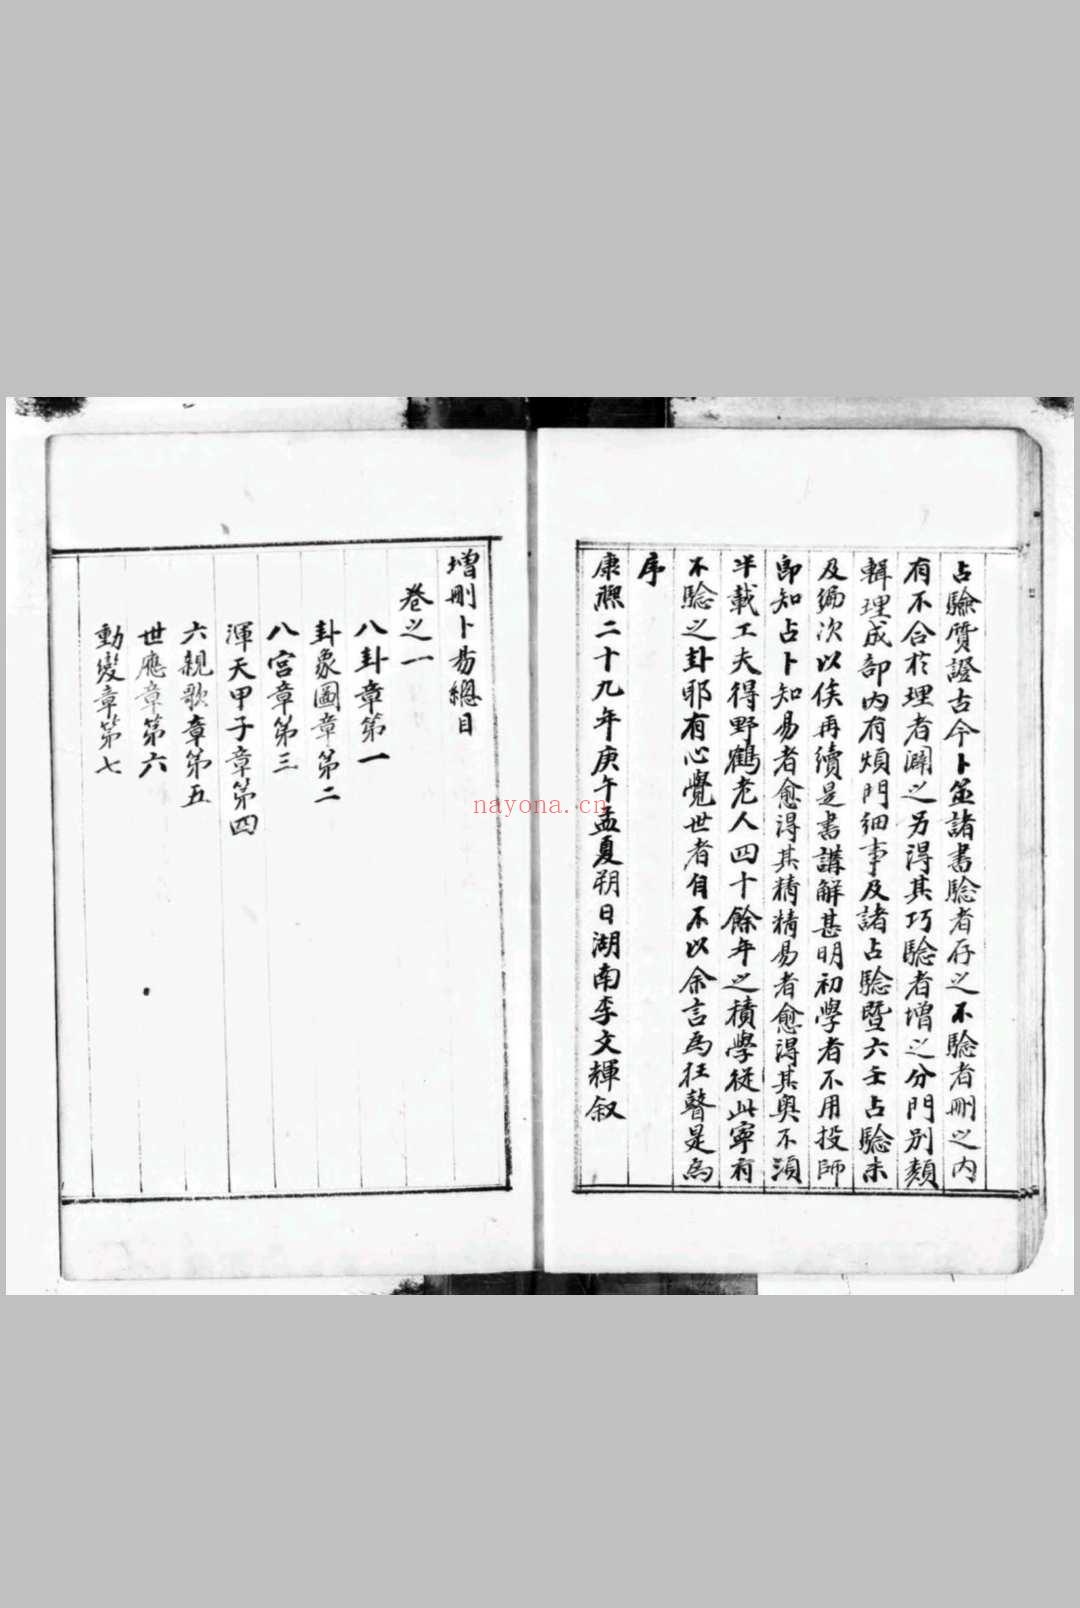 占驗質證古今卜筮諸書驗者存之不驗者刪之内
有不合於理者闢之另得其巧驗者增之分門別類
輯理成部内有煩門細事及諸占驗暨六壬占驗未
及編次以俟再續是書講解甚明初學者不用投師
即知占卜知易者愈得其精精易者愈得其奥不須
半載工夫得野鶴老人四十餘年之積學從此寧有
不驗之卦耶有心覺世者自不以余言為狂瞽是為
序
康熙二十九年庚午孟夏朔日湖南李文輝叙
增刪卜易總目
卷之一
八卦章第一
卦象圖章第二
八宫章第三
渾天甲子章第四
六親歌章第五
世應章第六
動變章第七
nayona.cn